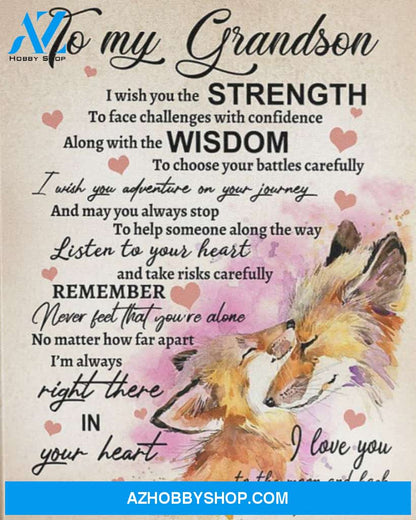 AZ
HOBBY SHOP
To my Grandson
I wish you the STRENGTH
To face challenges with confidence
Along with the WISDOM
To choose your battles carefully
I wish you adventure on your journey
And may you always stop
To help someone along the way
Listen to your heart
and take risks carefully
REMEMBER
Never feel that you're alone
No matter how far apart
I'm always
right there
IN
your heart
I love you
to the moon and back
AZHOBBYSHOP.COM